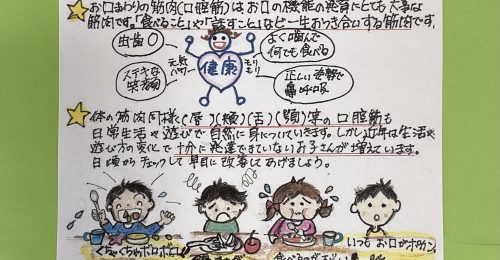 お口まわりの筋肉(口腔筋)はお口の機能の発育にとても大事な
筋肉です。「食べること」や「話すこと」など一生おつき合いする筋肉です。
よく噛んで
何でも食べる
元気
もりもり
健康
ステキな
笑顔
正しい姿勢で
鼻呼吸
体の筋肉同様、(唇)(頬)(舌)(顎)等の口腔筋も
日常生活や遊びで自然に身についていきます。しかし近年は生活や
遊び方の変化で十分に発達できていないお子さんが増えています。
日頃からチェックして早目に改善してあげましょう。
くちゃくちゃボロボロ
食べるのがおそい
いつもお口がポカン。